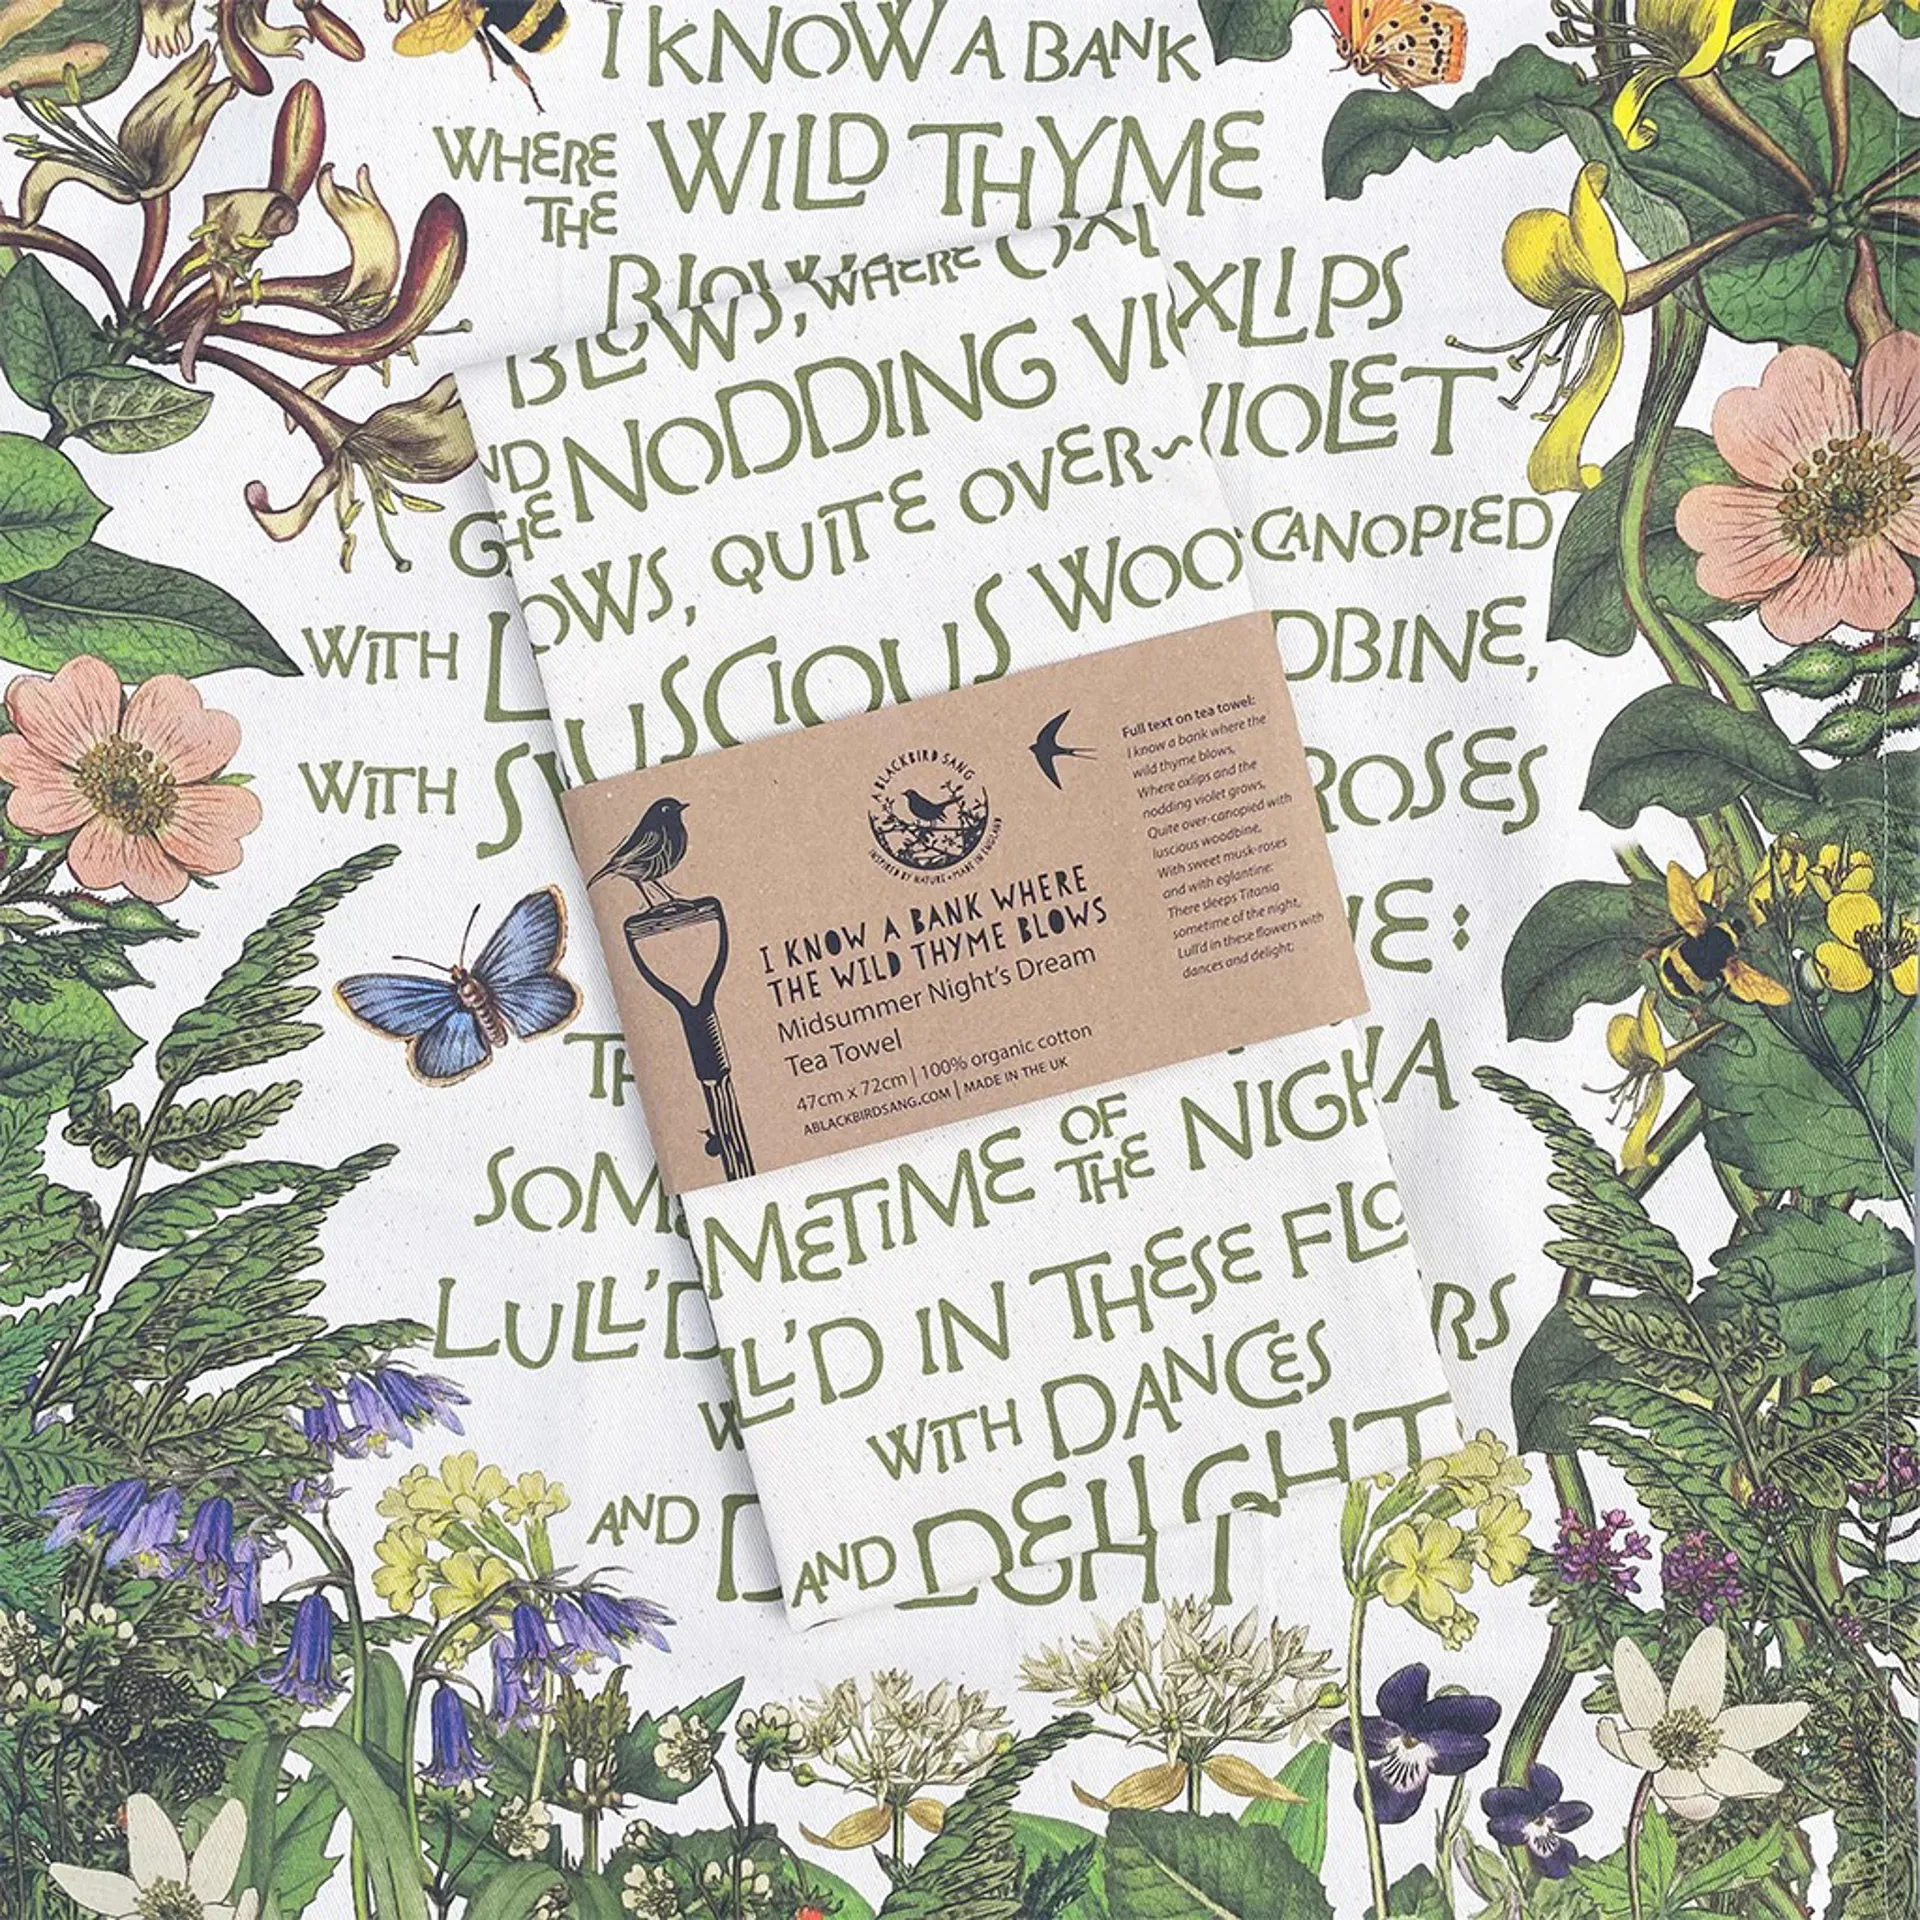 I KNOW A BANK
WHERE THE WILD THYME
BLOWS, WHERE
XLIPS
VIOLET
CANOPIED
WITH
DBINE,
WITH
ROSES
E:
A
SOM
LULL'D
RS
AND
BLOWS, WHERE
THE NODDING
OWS, QUITE OVER~
USCIOUS WOO
A BLACKBIRD SANG
INSPIRED BY NATURE • MADE IN ENGLAND
I KNOW A BANK WHERE
THE WILD THYME BLOWS
Midsummer Night's Dream
Tea Towel
47cm x 72cm | 100% organic cotton
ABLACKBIRDSANG.COM | MADE IN THE UK
Full text on tea towel:
I know a bank where the
wild thyme blows,
Where oxlips and the
nodding violet grows,
Quite over-canopied with
luscious woodbine,
With sweet musk-roses
and with eglantine:
There sleeps Titania
sometime of the night,
Lull'd in these flowers with
dances and delight;
METIME OF THE NIGH
LL'D IN THESE FLO
WITH DANCES
AND DELIGHT